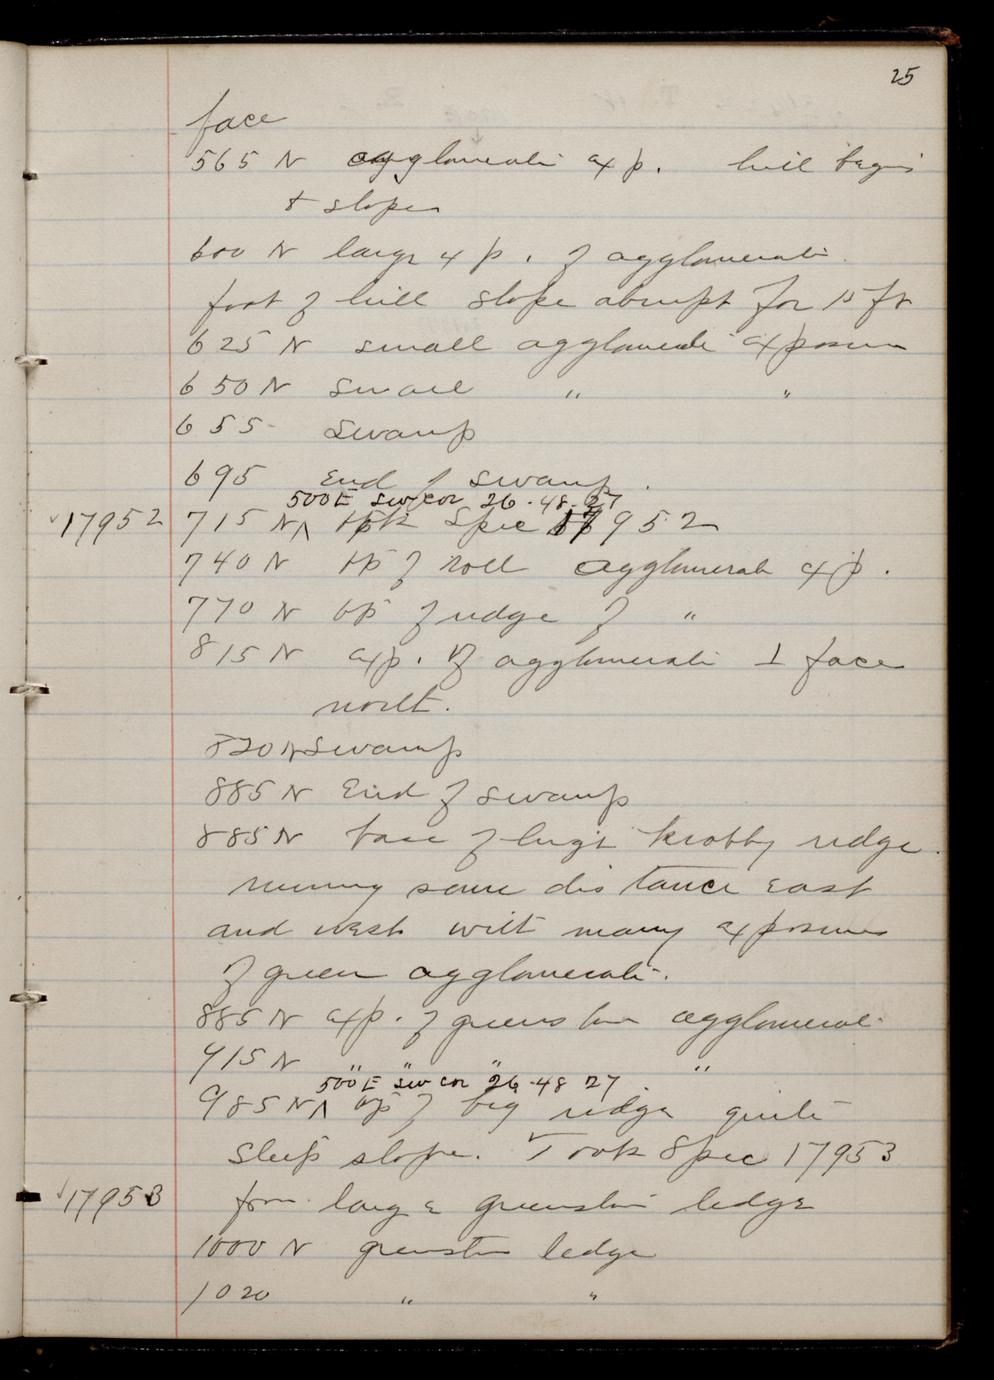 25
face
565 N agglomerate exp. hill begins
to slope
600 N large exp. of agglomerate.
foot of hill slope abrupt for 15 ft
625 N small agglomerate exposure
650 N small " "
655 swamp
695 End of swamp.
500 E SW cor 26-48-27
17952 715 N ^ took Spec 17952
740 N top of roll agglomerate exp.
770 N top of ridge of "
815 N exp. of agglomerate ⊥ face
north.
820 N swamp
885 N End of swamp
885 N base of high knobby ridge.
running some distance east
and west with many exposures
of green agglomerate.
885 N exp. of greenstone agglomerate
915 N " " " "
500 E SW cor 26-48 27
985 N ^ top of big ridge quite
steep slope. Took Spec 17953
17953 from large greenstone ledge
1000 N greenstone ledge
1020 " "